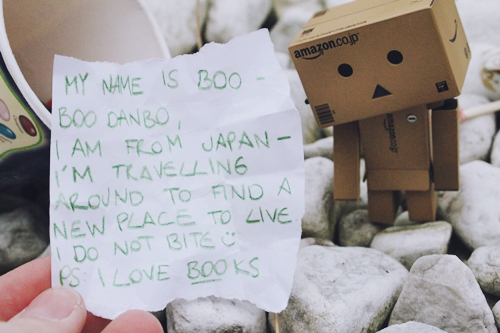 MY NAME IS BOO -
BOO DANBO,
I AM FROM JAPAN -
I'M TRAVELLING
AROUND TO FIND A
NEW PLACE TO LIVE
I DO NOT BITE ☺
PS: I LOVE BOOKS
amazon.co.jp